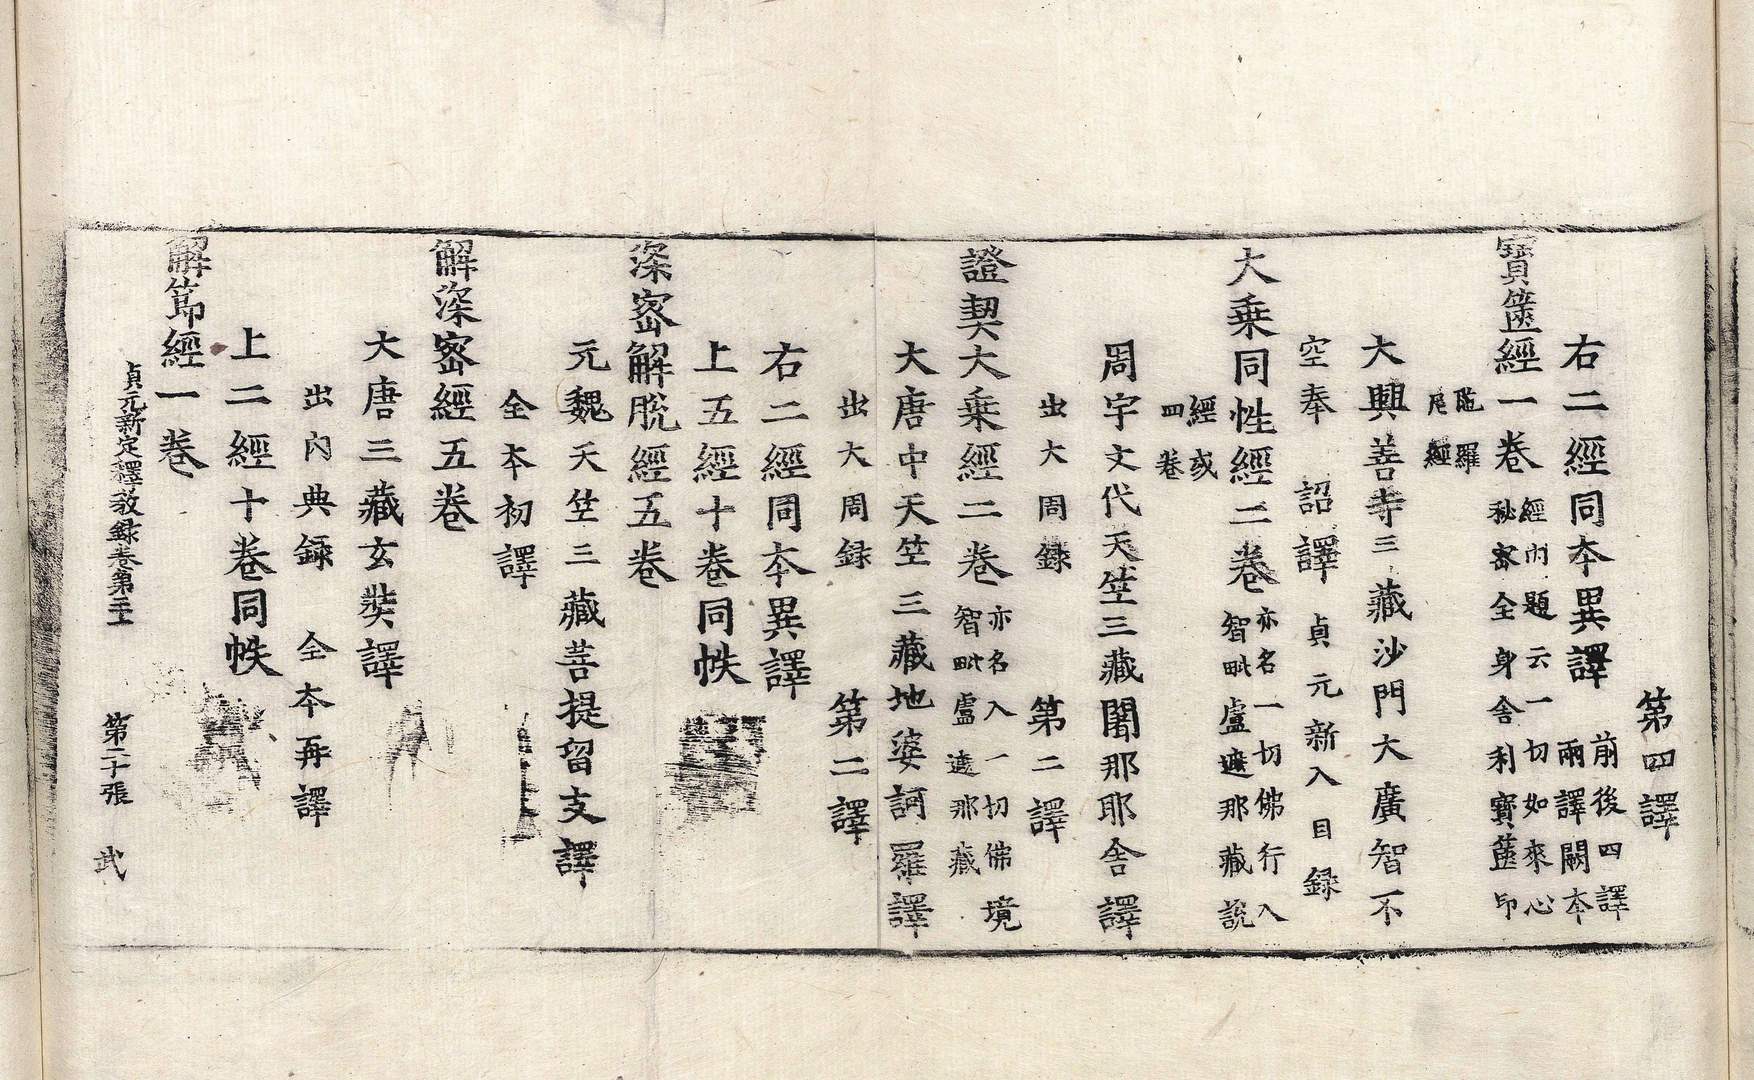 第四譯
右二經同本異譯 前後四譯
兩譯闕本
寶篋經一卷 經內題云一切如來心
秘密全身舍利寶篋印
陁羅
尼經
大興善寺三藏沙門大廣智不
空奉 詔譯 貞元新入目録
大乗同性經二卷 亦名一切佛行入
智毗盧遮那藏說
經或
四卷
周宇文代天竺三藏闍那耶舍譯
出大周録 第二譯
證契大乗經二卷 亦名入一切佛境
智毗盧遮那藏
大唐中天竺三藏地婆訶羅譯
出大周録 第二譯
右二經同本異譯
上五經十卷同帙
深密解脫經五卷
元魏天竺三藏菩提留支譯
全本初譯
解深密經五卷
大唐三藏玄奘譯
出內典録 全本再譯
上二經十卷同帙
解節經一卷
貞元新定釋教録卷第二十 第二十張 武